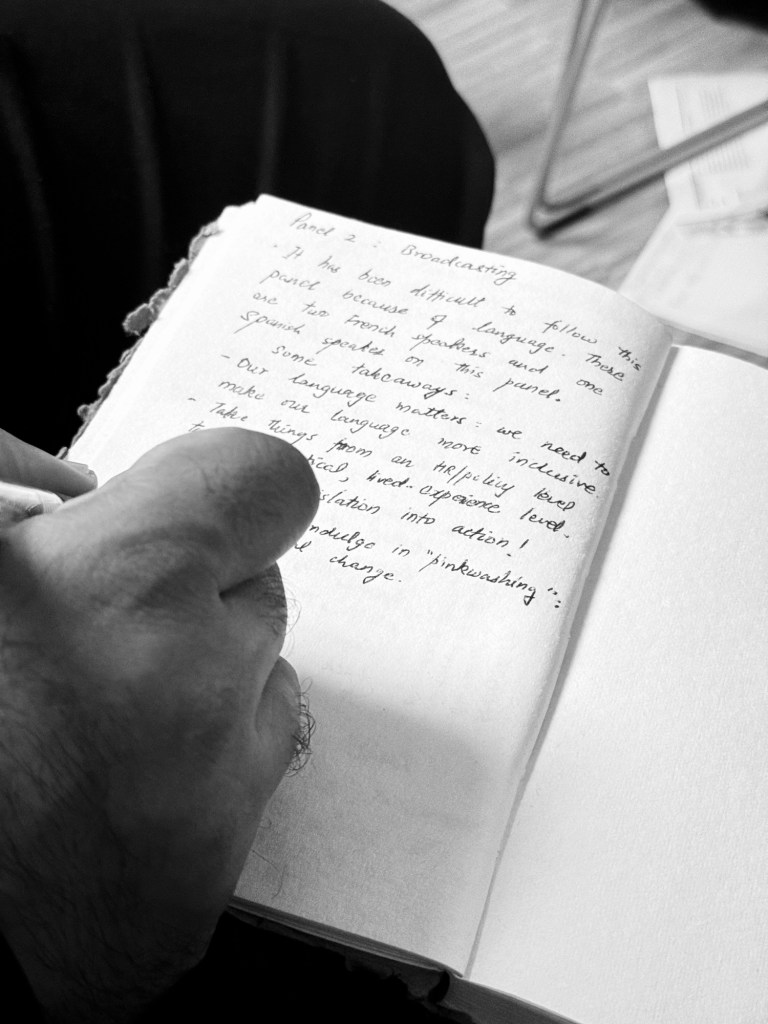 Panel 2 : Broadcasting
- It has been difficult to follow this
panel because of language. There
are two French speakers and one
Spanish speaker on this panel.
Some takeaways:
- Our language matters: we need to
make our language more inclusive.
- Take things from an HR/policy level
lived-experience level.
into action!
indulge in "pinkwashing":
change.